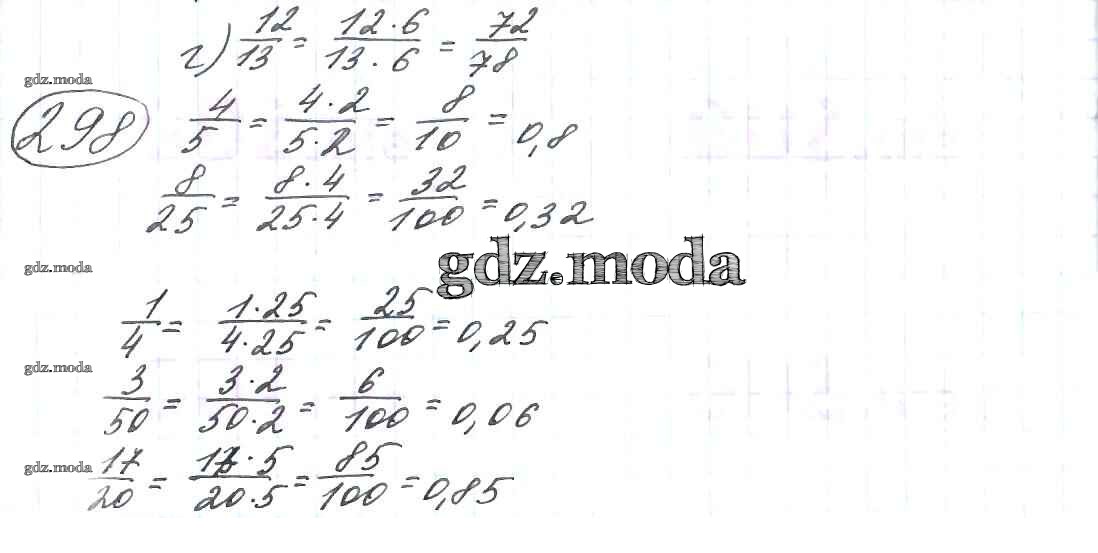 г) 12/13 = 12·6/13·6 = 72/78
gdz.moda
298 4/5 = 4·2/5·2 = 8/10 = 0,8
8/25 = 8·4/25·4 = 32/100 = 0,32
gdz.moda
gdz.moda
1/4 = 1·25/4·25 = 25/100 = 0,25
gdz.moda
3/50 = 3·2/50·2 = 6/100 = 0,06
gdz.moda
17/20 = 17·5/20·5 = 85/100 = 0,85